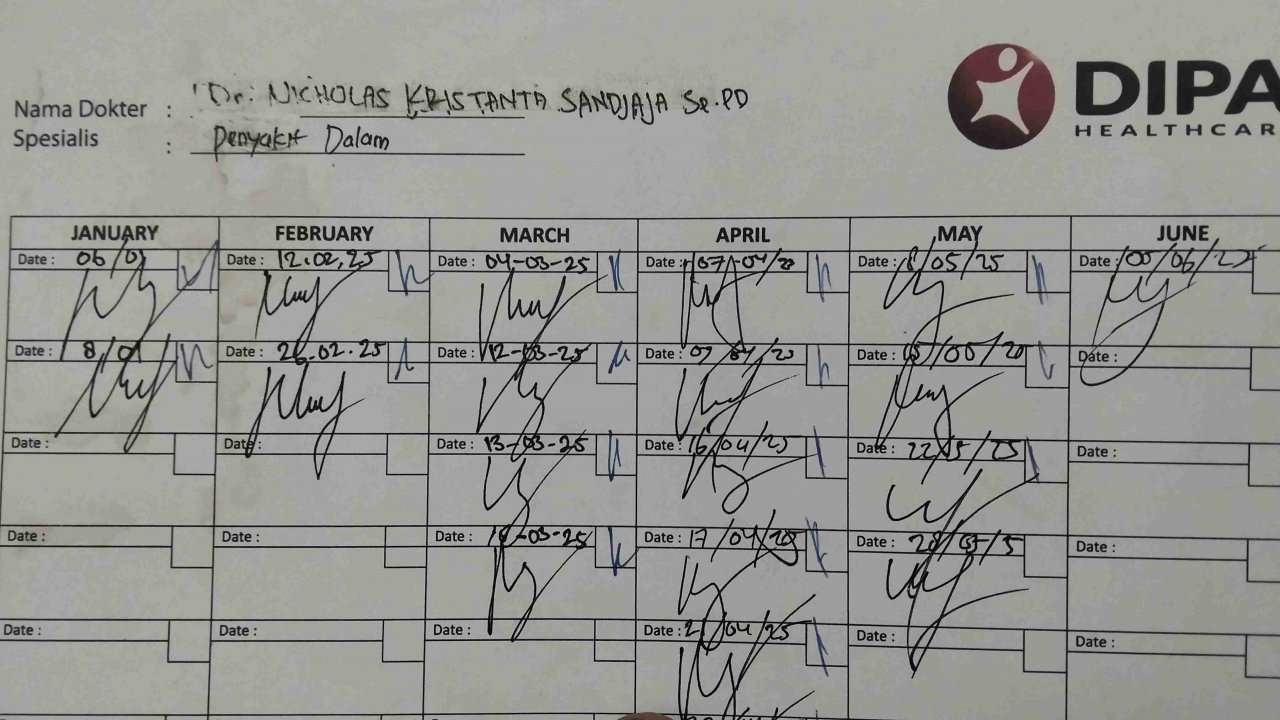 Nama Dokter : Dr. NICHOLAS KRISTANTA SANDJAJA Sp.PD
Spesialis : Penyakit Dalam
DIPA
HEALTHCAR
JANUARY FEBRUARY MARCH APRIL MAY JUNE
Date : 06/01 Date : 12.02.25 Date : 04-03-25 Date : 07/04/25 Date : /05/25 Date : /06/25
Date : 8/01 Date : 26.02.25 Date : 12-03-25 Date : /04/25 Date : Date :
Date : Date : Date : 13-03-25 Date : 16/04/25 Date : 22/5/25 Date :
Date : Date : Date : -03-25 Date : 17/04/25 Date : Date :
Date : Date : Date : Date : /04/25 Date : Date :